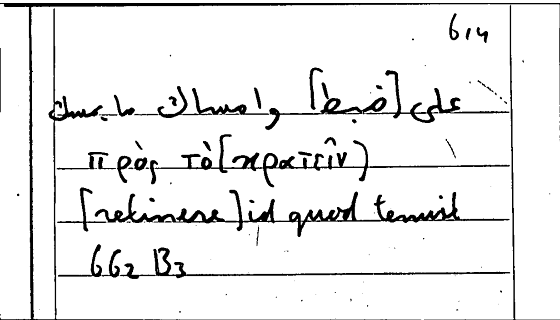 614
على [ضبط] وامساك ما يمسك
πρὸς τὸ [κρατεῖν)
[retinere] id quod tenuit
662 B3